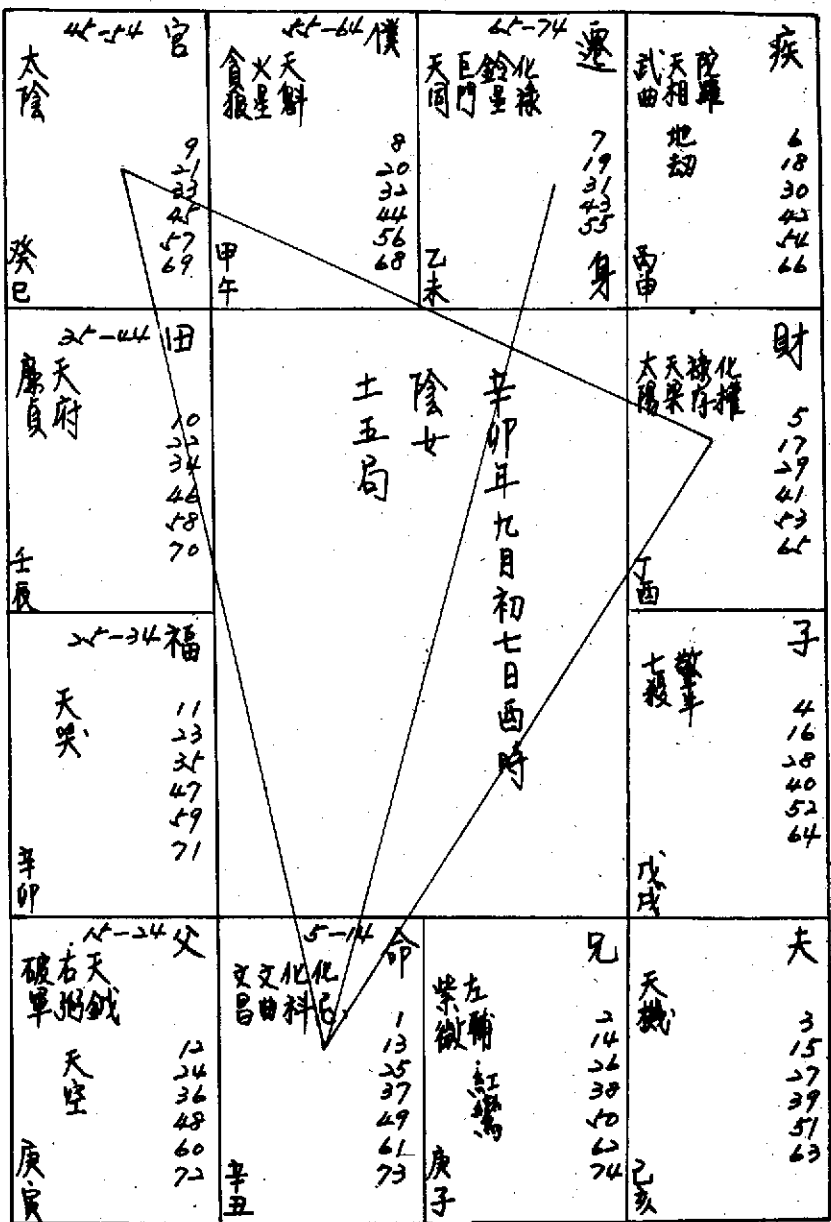 45-54 宮
太陰
9
21
33
45
57
69
癸巳
55-64 僕
貪狼 火星 天魁
8
20
32
44
56
68
甲午
65-74 遷
天同 巨門 鈴星 化祿
7
19
31
43
55
身
乙未
疾
武曲 天相 陀羅
地劫
6
18
30
42
54
66
丙申
35-44 田
廉貞 天府
10
22
34
46
58
70
壬辰
辛卯年九月初七日酉時
陰女
土五局
財
太陽 天梁 祿存 化權
5
17
29
41
53
65
丁酉
25-34 福
天哭
11
23
35
47
59
71
辛卯
子
七殺 擎羊
4
16
28
40
52
64
戊戌
15-24 父
破軍 右弼 天鉞
天空
12
24
36
48
60
72
庚寅
5-14 命
文昌 文曲 化科 化忌
1
13
25
37
49
61
73
辛丑
兄
紫微 左輔
紅鸞
2
14
26
38
50
62
74
庚子
夫
天機
3
15
27
39
51
63
己亥